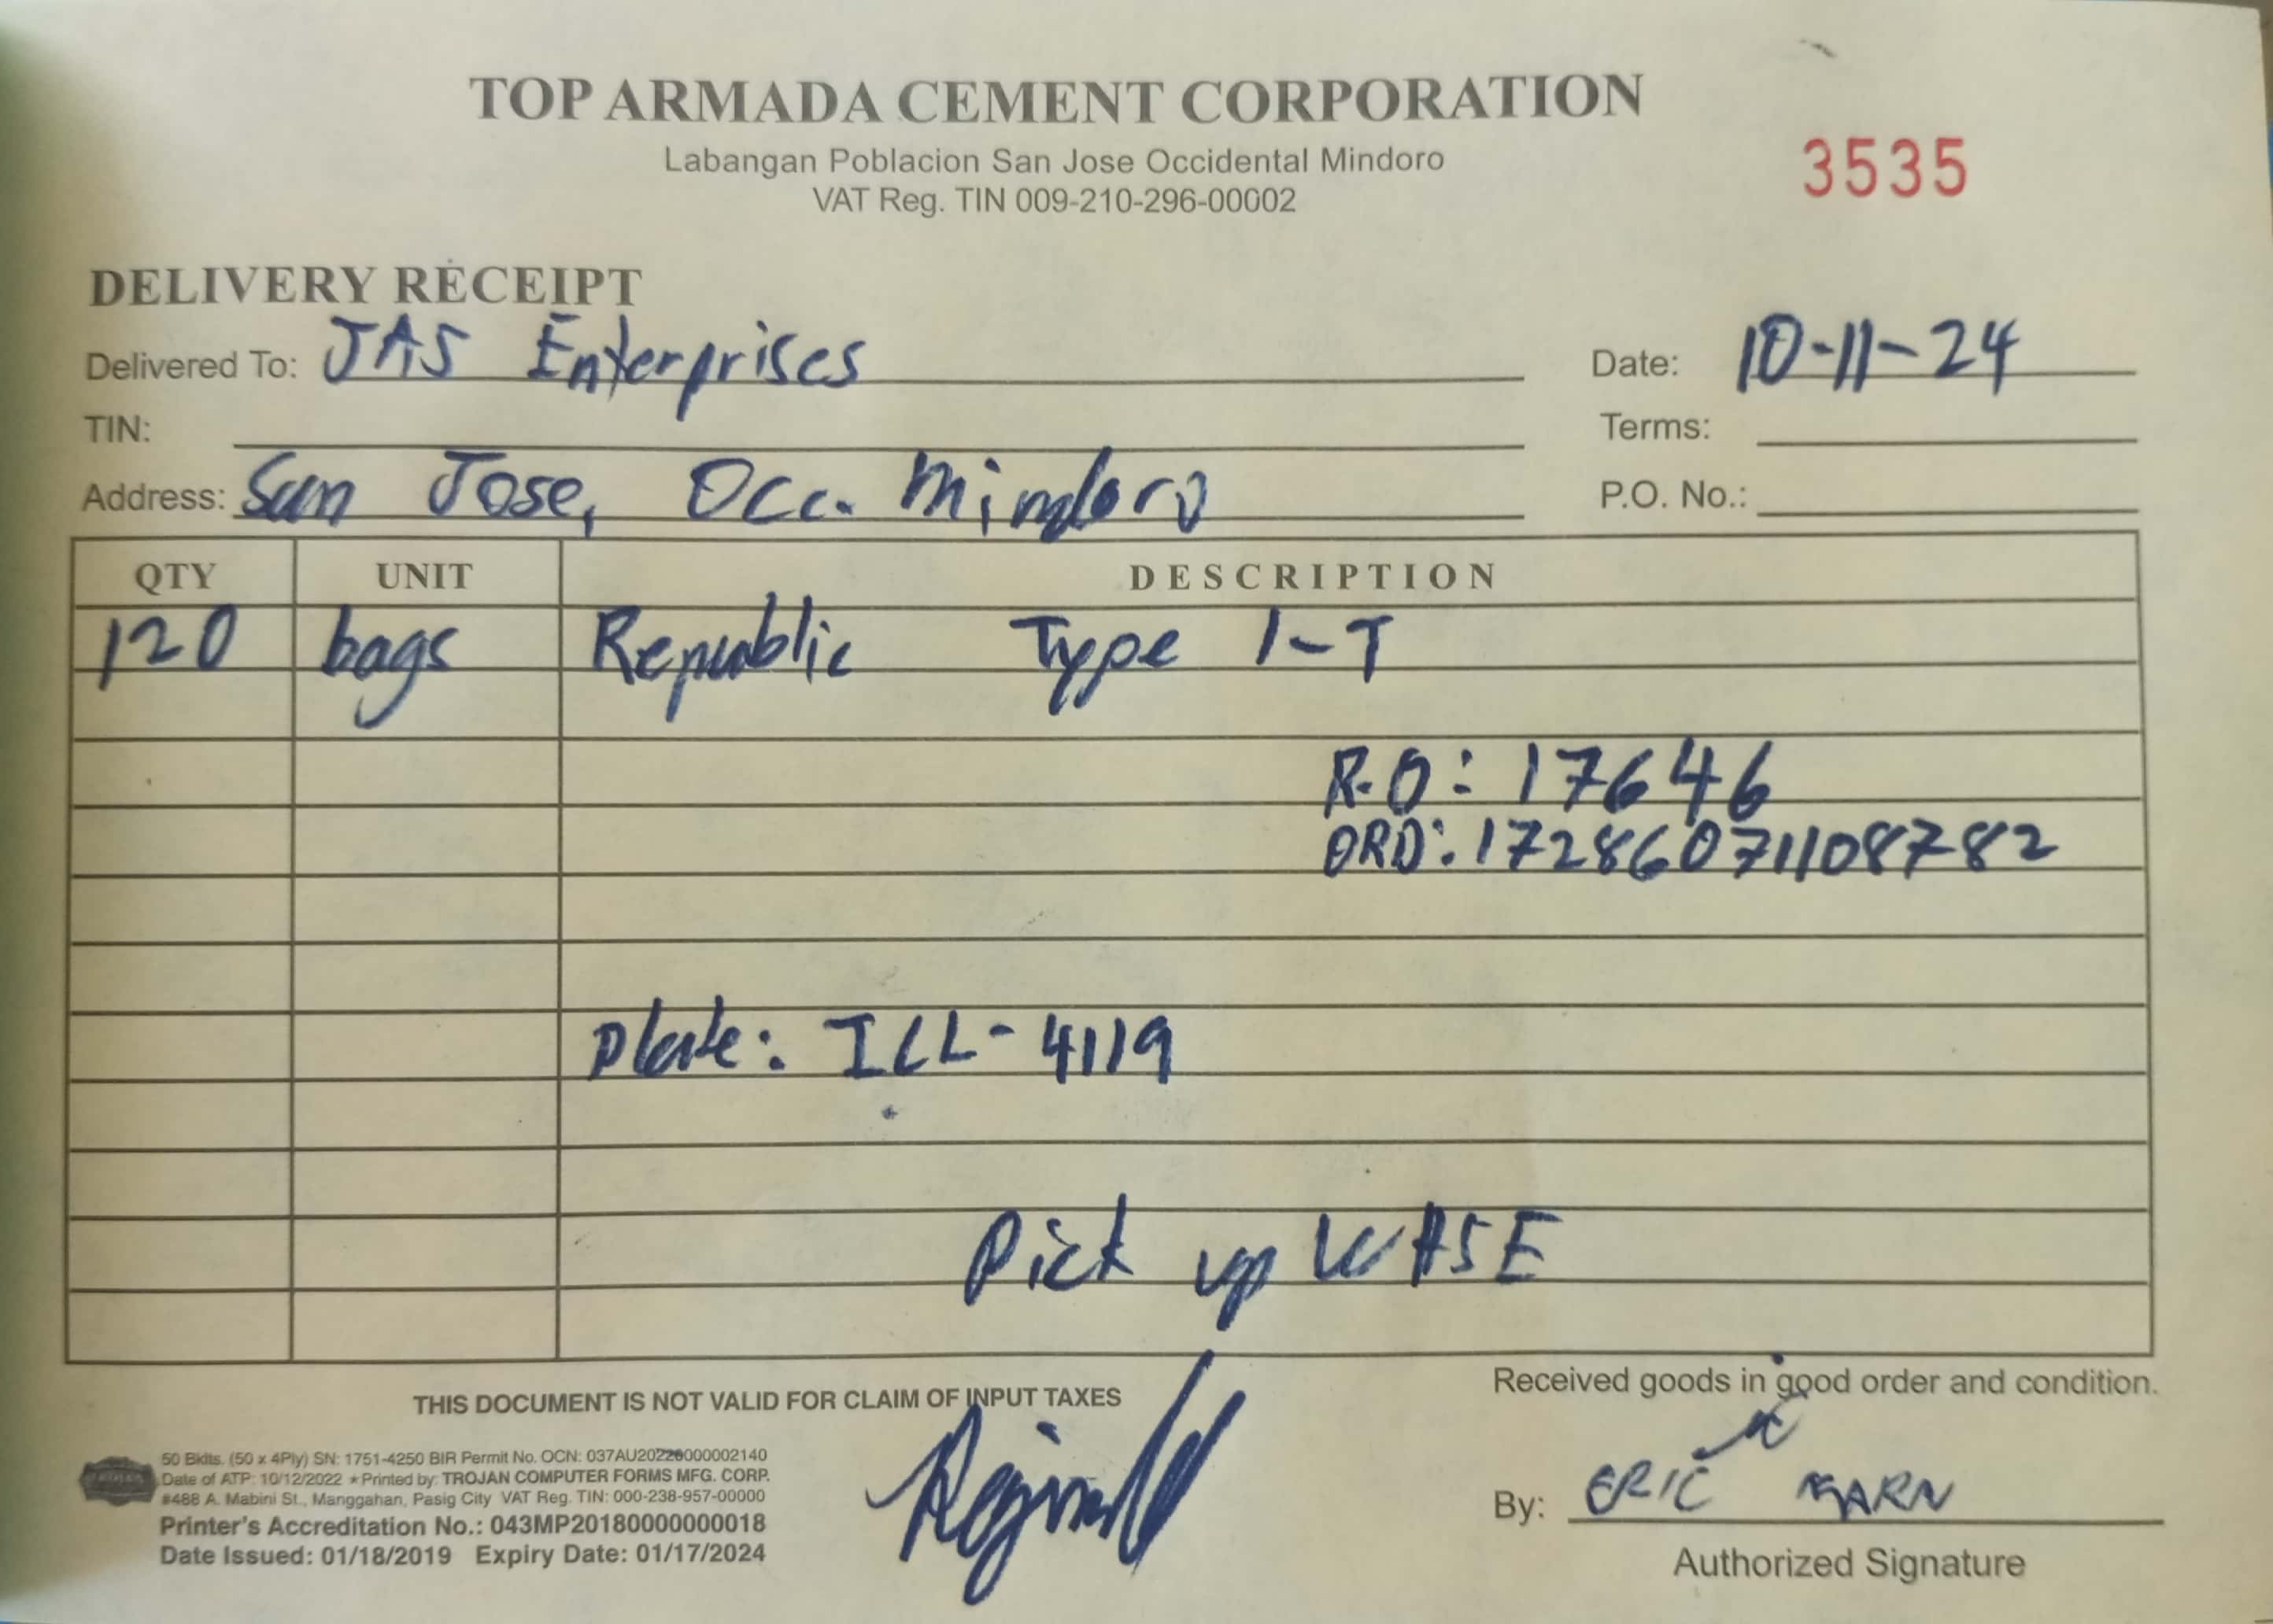 TOP ARMADA CEMENT CORPORATION
Labangan Poblacion San Jose Occidental Mindoro
VAT Reg. TIN 009-210-296-00002
3535
DELIVERY RECEIPT
Delivered To: JAS Enterprises
Date: 10-11-24
TIN:
Terms:
Address: San Jose, Occ. Mindoro
P.O. No.:
QTY UNIT DESCRIPTION
120 bags Republic Type 1-T
R.O: 17646
ORD: 17286071108782
Plate: ICL-4119
Pick up WHSE
THIS DOCUMENT IS NOT VALID FOR CLAIM OF INPUT TAXES
Received goods in good order and condition.
50 Bklts. (50 x 4Ply) SN: 1751-4250 BIR Permit No. OCN: 037AU20220000002140
Date of ATP: 10/12/2022 ★ Printed by: TROJAN COMPUTER FORMS MFG. CORP.
#488 A. Mabini St., Manggahan, Pasig City VAT Reg. TIN: 000-238-957-00000
Printer's Accreditation No.: 043MP20180000000018
Date Issued: 01/18/2019 Expiry Date: 01/17/2024
Reginald
By: ERIC
Authorized Signature